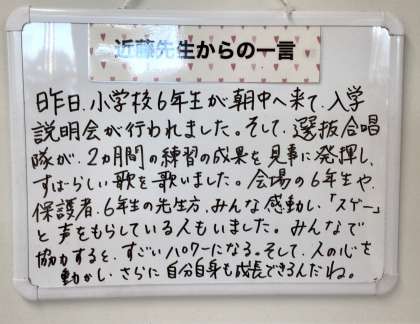 近藤先生からの一言
昨日、小学校6年生が朝中へ来て、入学
説明会が行われました。そして、選抜合唱
隊が、2ヵ月間の練習の成果を見事に発揮し、
すばらしい歌を歌いました。会場の6年生や、
保護者、6年生の先生方、みんな感動し、「スゲー」
と声をもらしている人もいました。みんなで
協力すると、すごいパワーになる。そして、人の心を
動かし、さらに自分自身も成長できるんだね。